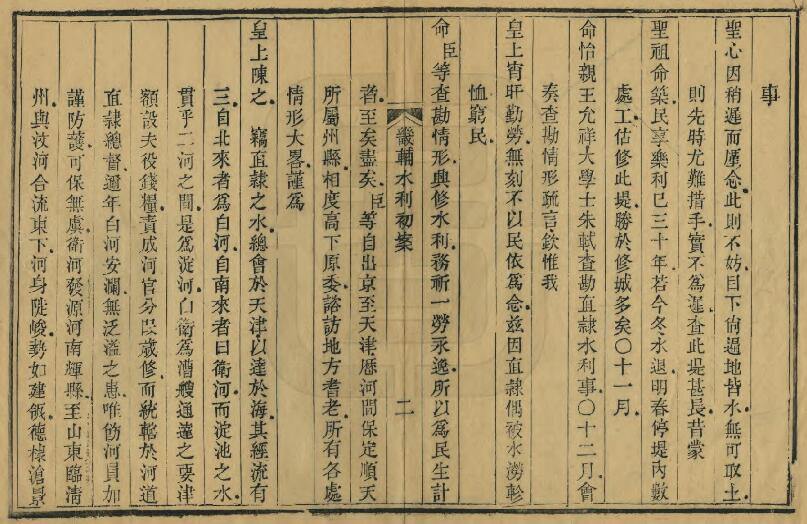 事
聖心因稍遲而廑念此則不妨目下倘過地皆水無可取土
則先時尤難措手實不為遲查此堤甚長昔蒙
聖祖命築民享樂利已三十年若今冬水退明春停堤內數
處工估修此堤勝於修城多矣〇十一月
命怡親王允祥大學士朱軾查勘直隸水利事〇十二月會
奏查勘情形疏言欽惟我
皇上宵旰勤勞無刻不以民依為念茲因直隸偶被水澇軫
恤窮民
命臣等查勘情形興修水利務祈一勞永逸所以為民生計
畿輔水利初案 二
者至矣盡矣臣等自出京至天津歷河間保定順天
所屬州縣相度高下原委諮訪地方耆老所有各處
情形大畧謹為
皇上陳之竊直隸之水總會於天津以達於海其經流有
三自北來者為白河自南來者曰衛河而淀池之水
貫乎二河之間是為淀河白衛為漕艘通達之要津
額設夫役錢糧責成河官分叚歲修而統轄於河道
直隸總督邇年白河安瀾無泛溢之患唯飭河員加
謹防護可保無虞衛河發源河南輝縣至山東臨清
州與汶河合流東下河身陡峻勢如建瓴德棣滄景